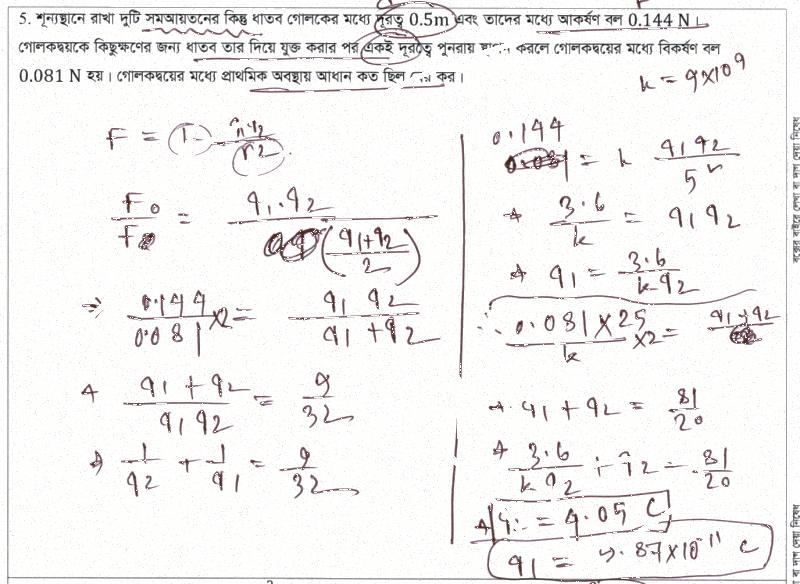 5. শূন্যস্থানে রাখা দুটি সমআয়তনের কিন্তু ধাতব গোলকের মধ্যে দূরত্ব 0.5m এবং তাদের মধ্যে আকর্ষণ বল 0.144 N ।
গোলকদ্বয়কে কিছুক্ষণের জন্য ধাতব তার দিয়ে যুক্ত করার পর একই দূরত্বে পুনরায় করলে গোলকদ্বয়ের মধ্যে বিকর্ষণ বল
0.081 N হয়। গোলকদ্বয়ের মধ্যে প্রাথমিক অবস্থায় আধান কত ছিল কর।
k = 9×10^9
F = r2
F0 / F = q1.q2 / (q1+q2 / 2)
⇒ 0.144 / 0.081 ×2 = q1 q2 / q1+q2
q1+q2 / q1q2 = 9 / 32
⇒ 1/q2 + 1/q1 = 9/32
0.144 = k q1q2 / 5
3.6 / k = q1q2
q1 = 3.6 / k q2
0.081×25 / k ×2 = q1+q2
q1+q2 = 81 / 20
3.6 / k q2 + q2 = 81 / 20
= 4.05 C
q1 = 87×10^-11 C
বক্সের বাইরে লেখা বা দাগ দেয়া নিষেধ
বা দাগ দেয়া নিষেধ